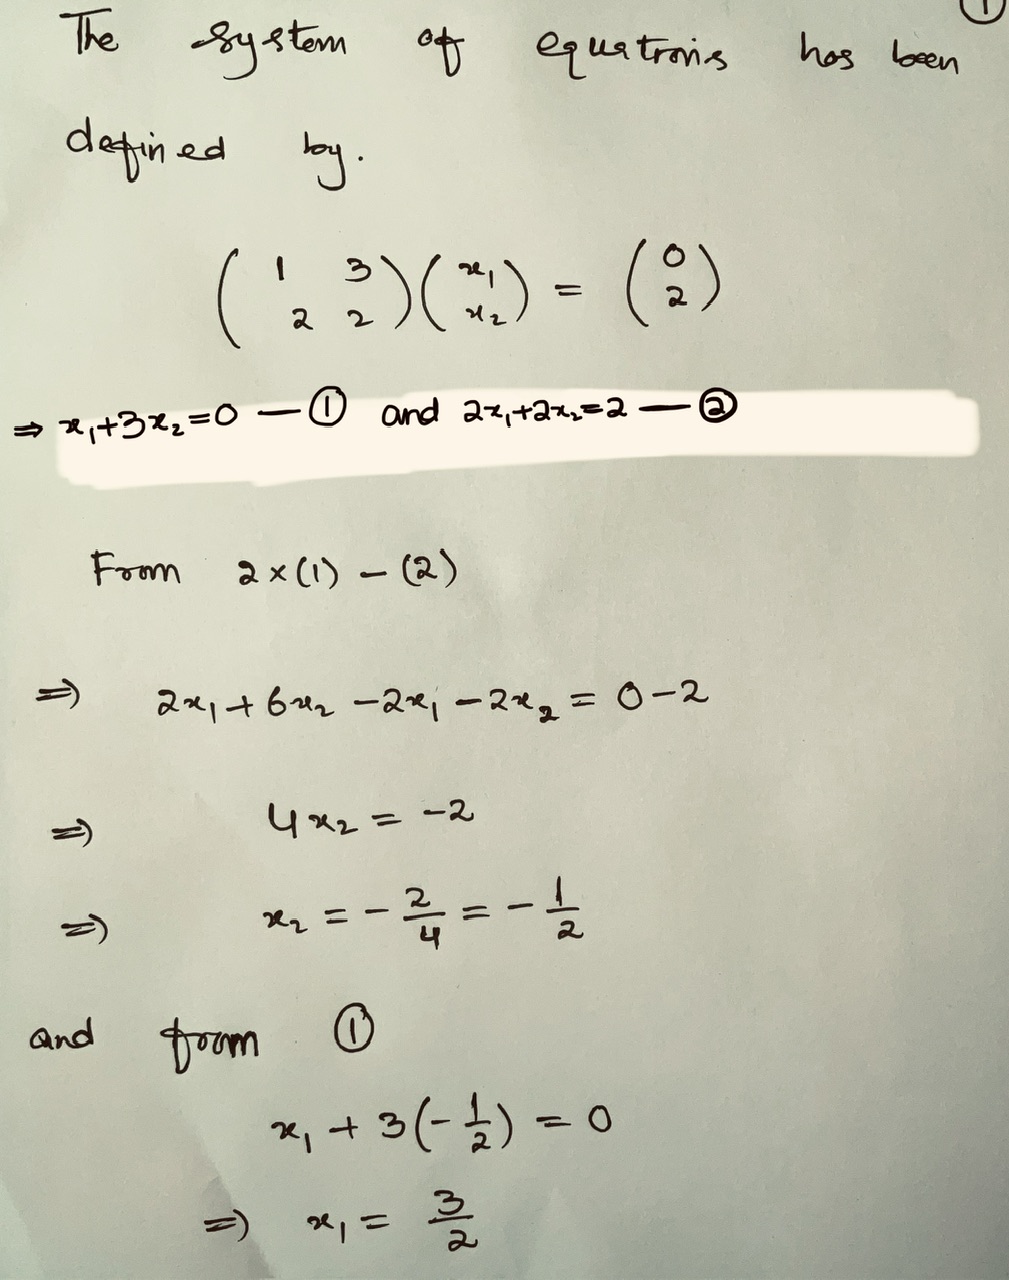 ①
The system of equations has been
defined by.
( 1 3 ) ( x₁ ) = ( 0 )
( 2 2 ) ( x₂ ) ( 2 )
⇒ x₁+3x₂=0 — ① and 2x₁+2x₂=2 — ②
From 2×(1) – (2)
⇒ 2x₁ + 6x₂ – 2x₁ – 2x₂ = 0 – 2
⇒ 4x₂ = –2
⇒ x₂ = – 2/4 = – 1/2
and from ①
x₁ + 3(– 1/2) = 0
⇒ x₁ = 3/2